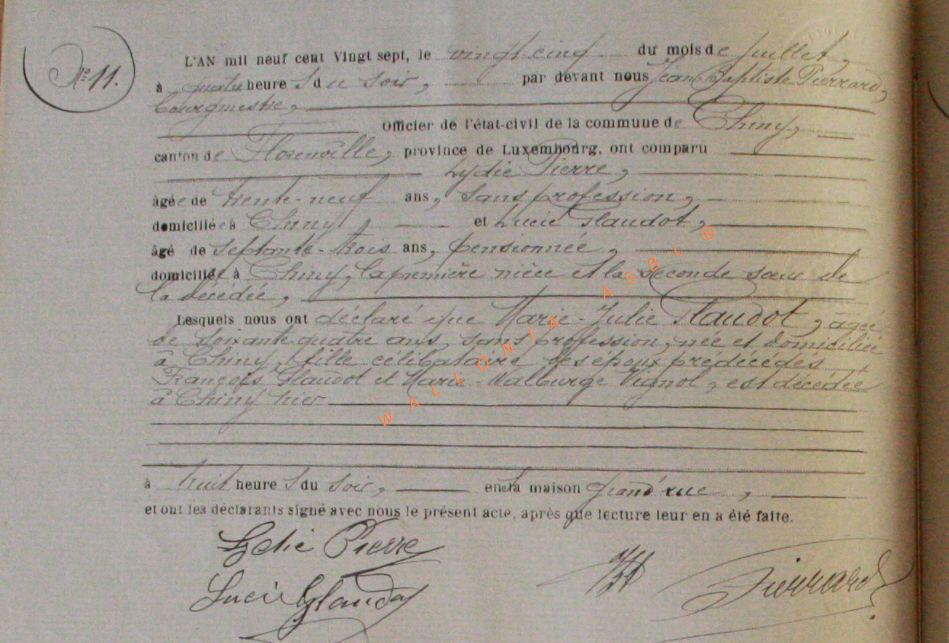 N° 11.
L'AN mil neuf cent Vingt sept, le vingt cinq du mois de Juillet,
à quatre heure s du soir, par devant nous Jean Baptiste Pierrard,
bourgmestre,
Officier de l'état-civil de la commune de Chiny,
canton de Florenville, province de Luxembourg, ont comparu
Lydie Pierre,
âgée de trente-neuf ans, sans profession,
domiciliée à Chiny, et Lucie Glaudot,
âgé de septante-trois ans, pensionnée,
domiciliée à Chiny, la première nièce et la seconde sœur de
la décédée,
Lesquels nous ont déclaré que Marie-Julie Glaudot, âgée
de soixante-quatre ans, sans profession, née et domiciliée
à Chiny, fille célibataire des époux prédécédés
François Glaudot et Marie-Walburge Vignol, est décédée
à Chiny hier
à huit heure s du soir, en sa maison Grand'rue,
et ont les déclarants signé avec nous le présent acte, après que lecture leur en a été faite.
Lydie Pierre
Lucie Glaudot
Pierrard
WALLONIA ASBL ©